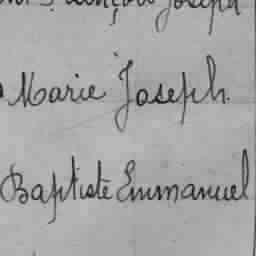 François Joseph
Marie Joseph
Baptiste Emmanuel